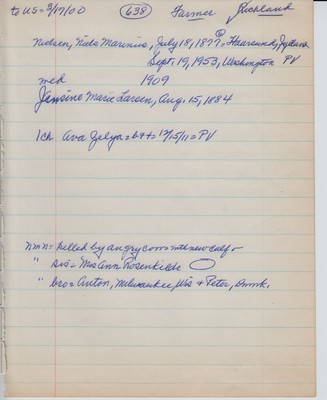 to US = 3/17/00 638 Farmer Richland
Nielsen, Niels Marinius, July 18, 1877 = Haarenred, Jydland
Sept. 19, 1953, Washington PV
med 1909
Jensine Marie Larsen, Aug. 15, 1884
1 ch Ava Zelya = b9 + = 12/15/11 = PV
nmn = killed by angry cow with new calf -
" sis = Mrs Ann Rosenkilde
" bro = Anton, Milwaukee, Wis + Peter, Dnmk.